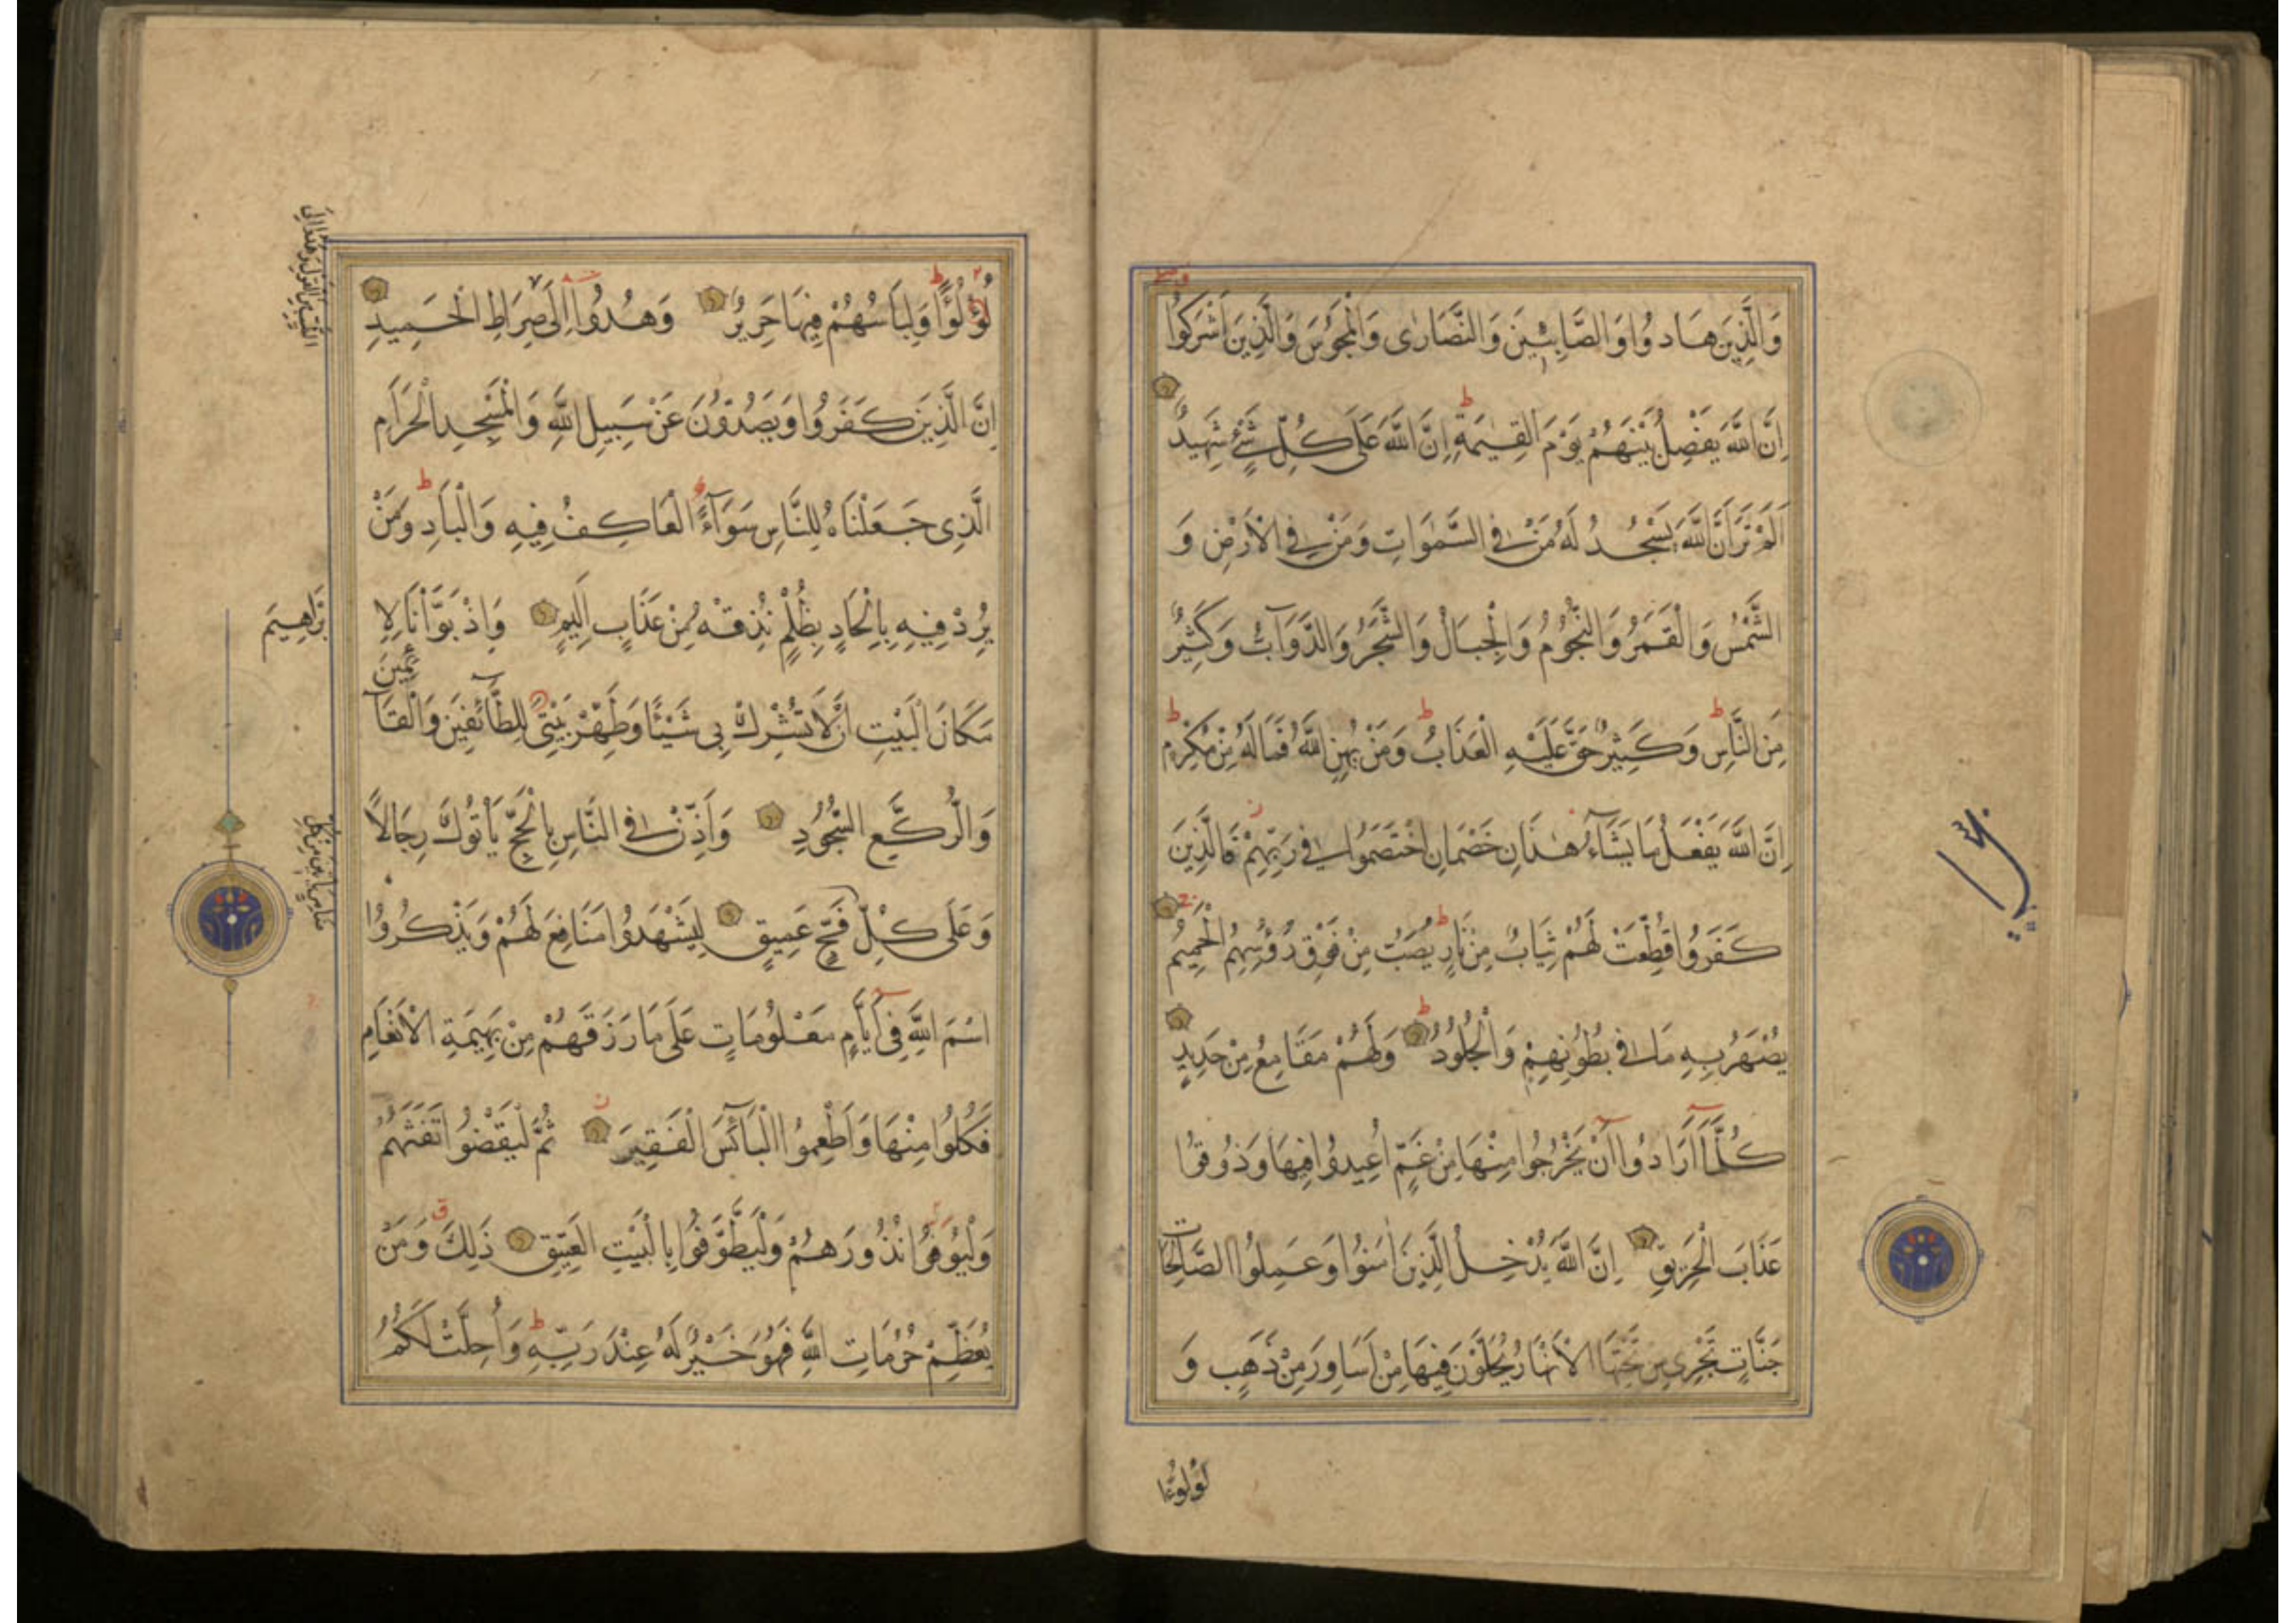 وَالَّذِينَ هَادُوا وَالصَّابِئِينَ وَالنَّصَارٰى وَالْمَجُوسَ وَالَّذِينَ اَشْرَكُوا
اِنَّ اللّٰهَ يَفْصِلُ بَيْنَهُمْ يَوْمَ الْقِيٰمَةِ اِنَّ اللّٰهَ عَلَى كُلِّ شَيْءٍ شَهِيدٌ
اَلَمْ تَرَ اَنَّ اللّٰهَ يَسْجُدُ لَهُ مَنْ فِي السَّمٰوَاتِ وَمَنْ فِي الْاَرْضِ وَ
الشَّمْسُ وَالْقَمَرُ وَالنُّجُومُ وَالْجِبَالُ وَالشَّجَرُ وَالدَّوَآبُّ وَكَثِيرٌ
مِنَ النَّاسِ وَكَثِيرٌ حَقَّ عَلَيْهِ الْعَذَابُ وَمَنْ يُهِنِ اللّٰهُ فَمَا لَهُ مِنْ مُكْرِمٍ
اِنَّ اللّٰهَ يَفْعَلُ مَا يَشَآءُ هٰذَانِ خَصْمَانِ اخْتَصَمُوا فِي رَبِّهِمْ فَالَّذِينَ
كَفَرُوا قُطِّعَتْ لَهُمْ ثِيَابٌ مِنْ نَارٍ يُصَبُّ مِنْ فَوْقِ رُؤُسِهِمُ الْحَمِيمُ
يُصْهَرُ بِهِ مَا فِي بُطُونِهِمْ وَالْجُلُودُ وَلَهُمْ مَقَامِعُ مِنْ حَدِيدٍ
كُلَّمَآ اَرَادُوا اَنْ يَخْرُجُوا مِنْهَا مِنْ غَمٍّ اُعِيدُوا فِيهَا وَذُوقُوا
عَذَابَ الْحَرِيقِ اِنَّ اللّٰهَ يُدْخِلُ الَّذِينَ اٰمَنُوا وَعَمِلُوا الصَّالِحَاتِ
جَنَّاتٍ تَجْرِي مِنْ تَحْتِهَا الْاَنْهَارُ يُحَلَّوْنَ فِيهَا مِنْ اَسَاوِرَ مِنْ ذَهَبٍ وَ
لُؤْلُؤًا
لُؤْلُؤًا وَلِبَاسُهُمْ فِيهَا حَرِيرٌ وَهُدُوا اِلَى صِرَاطِ الْحَمِيدِ
الطَّيِّبِ مِنَ الْقَوْلِ وَهُدُوا اِلَى
اِنَّ الَّذِينَ كَفَرُوا وَيَصُدُّونَ عَنْ سَبِيلِ اللّٰهِ وَالْمَسْجِدِ الْحَرَامِ
الَّذِي جَعَلْنَاهُ لِلنَّاسِ سَوَآءً الْعَاكِفُ فِيهِ وَالْبَادِ وَمَنْ
يُرِدْ فِيهِ بِاِلْحَادٍ بِظُلْمٍ نُذِقْهُ مِنْ عَذَابٍ اَلِيمٍ وَاِذْ بَوَّأْنَا لِاِ
بْرَاهِيمَ
مَكَانَ الْبَيْتِ اَنْ لَا تُشْرِكْ بِي شَيْئًا وَطَهِّرْ بَيْتِيَ لِلطَّآئِفِينَ وَالْقَآ
ئِمِينَ
وَالرُّكَّعِ السُّجُودِ وَاَذِّنْ فِي النَّاسِ بِالْحَجِّ يَأْتُوكَ رِجَالًا
وَعَلَى كُلِّ فَجٍّ عَمِيقٍ لِيَشْهَدُوا مَنَافِعَ لَهُمْ وَيَذْكُرُوا
ضَامِرٍ يَأْتِينَ مِنْ كُلِّ
اسْمَ اللّٰهِ فِي اَيَّامٍ مَعْلُومَاتٍ عَلَى مَا رَزَقَهُمْ مِنْ بَهِيمَةِ الْاَنْعَامِ
فَكُلُوا مِنْهَا وَاَطْعِمُوا الْبَآئِسَ الْفَقِيرَ ثُمَّ لْيَقْضُوا تَفَثَهُمْ
وَلْيُوفُوا نُذُورَهُمْ وَلْيَطَّوَّفُوا بِالْبَيْتِ الْعَتِيقِ ذَلِكَ وَمَنْ
يُعَظِّمْ حُرُمَاتِ اللّٰهِ فَهُوَ خَيْرٌ لَهُ عِنْدَ رَبِّهِ وَاُحِلَّتْ لَكُمُ